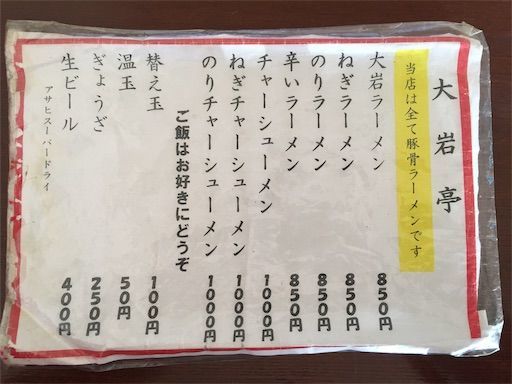 大岩亭
当店は全て豚骨ラーメンです
大岩ラーメン 850円
ねぎラーメン 850円
のりラーメン 850円
辛いラーメン 850円
チャーシューメン 1000円
ねぎチャーシューメン 1000円
のりチャーシューメン 1000円
ご飯はお好きにどうぞ
替え玉 100円
温玉 50円
ぎょうざ 250円
生ビール 400円
アサヒスーパードライ